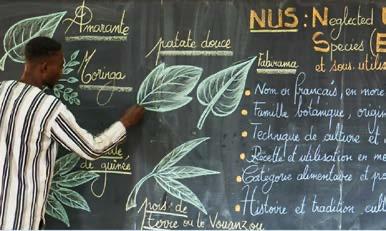 Amarante
Moringa
patate douce
de guinée
pois de
Terre ou le Vouanzou
Tabarama
NUS: Neglected
Species (E
et sous utilis
Nom en français, en more
Famille botanique, origin
Technique de culture et
Recette et utilisation en me
Categorie alimentaire et po
Histoire et tradition cult